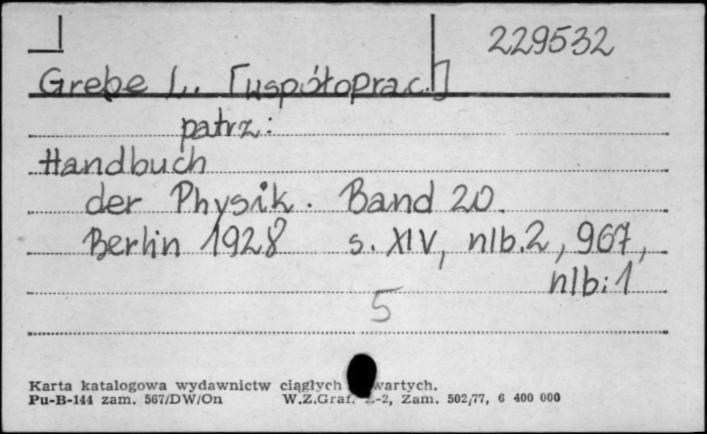 229532
Grebe L. [współoprac.]
patrz:
Handbuch
der Physik. Band 20.
Berlin 1928 s. XIV, nlb. 2, 967,
nlb: 1
5
Karta katalogowa wydawnictw ciągłych wartych.
Pu-B-144 zam. 567/DW/On W.Z.Graf. -2, Zam. 502/77, 6 400 000